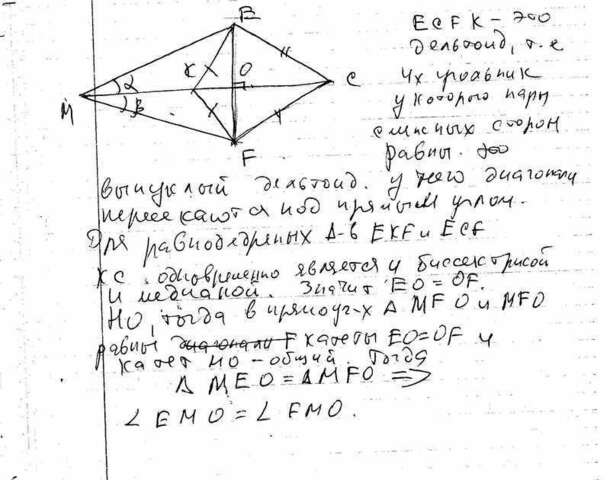 E
ECFK - это
дельтоид, т.е
K
O
C
4х угольник
α
M
β
у которого пары
смежных сторон
F
равны. это
выпуклый дельтоид. у него диагонали
пересекаются под прямым углом.
Для равнобедреных Δ-в EKF и ECF
KC одновременно является и биссектрисой
и медианой. Значит EO = OF.
НО, тогда в прямоуг-х Δ MFO и MFO
равны диагонали F катеты EO=OF и
катет MO - общий. Тогда
Δ MEO = Δ MFO =>
∠ EMO = ∠ FMO.